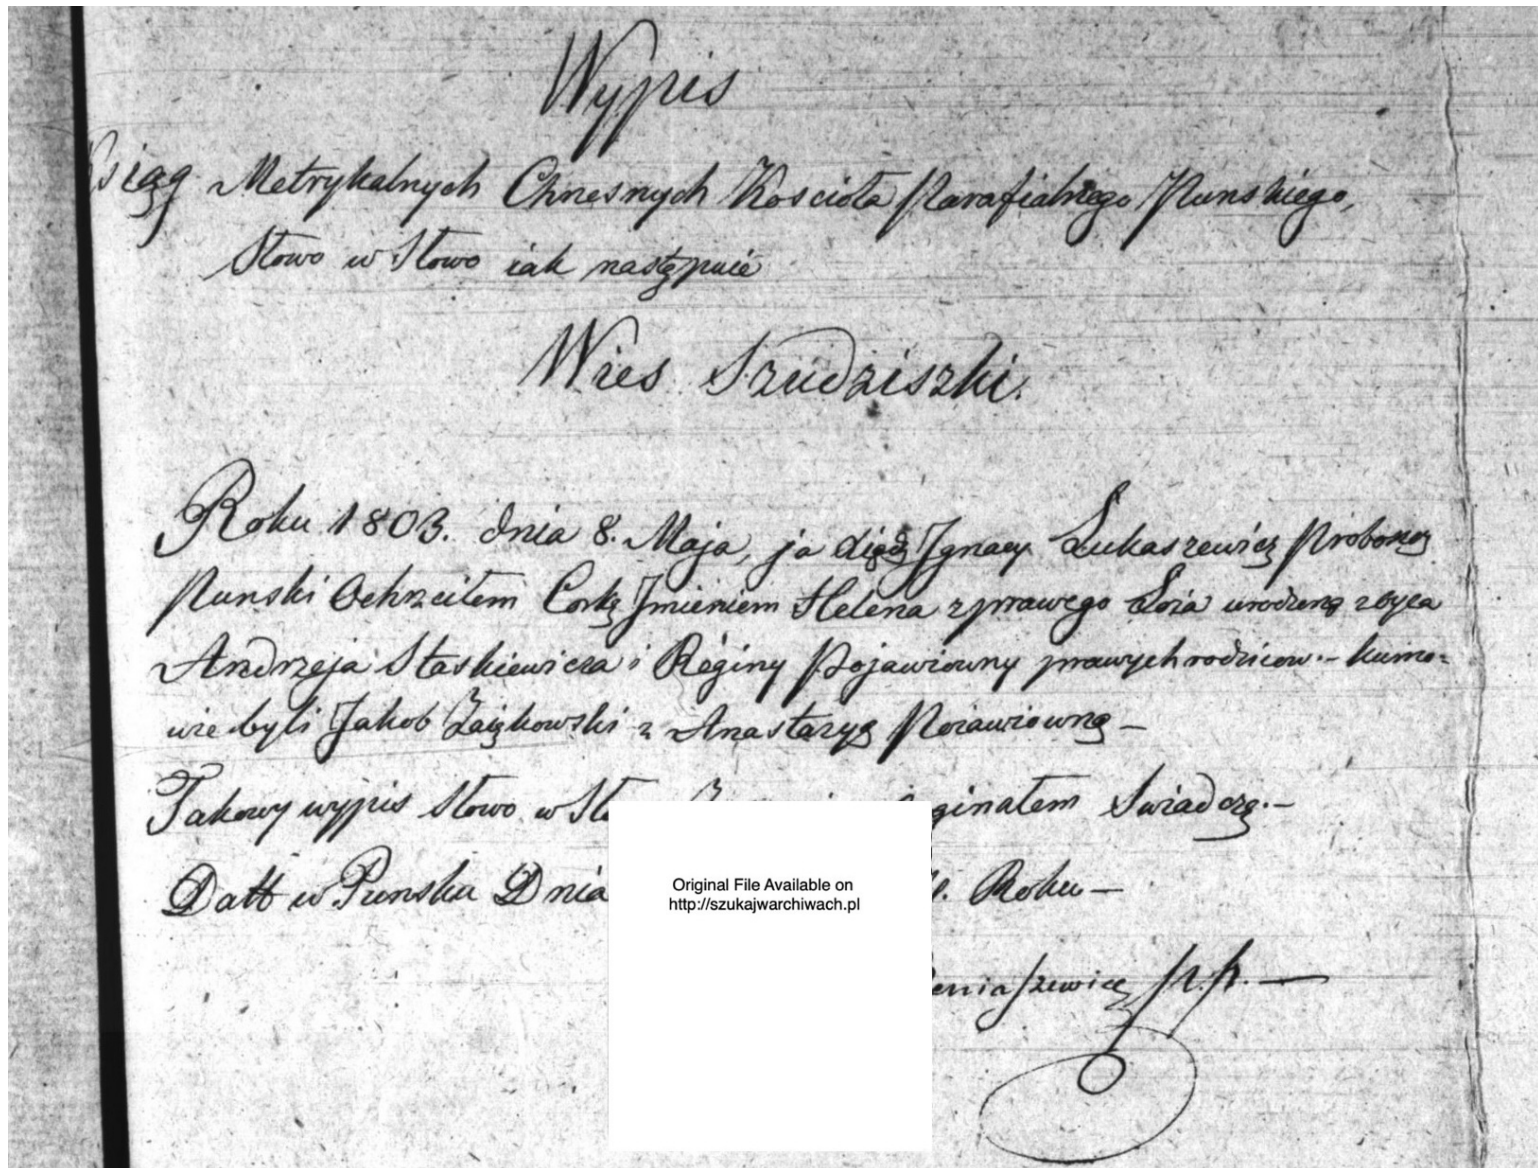 Wypis
Ksiąg Metrykalnych Chrzesnych Koscioła Parafialnego Punskiego,
Słowo w Słowo iak następuie
Wies Szudziszki.
Roku 1803. dnia 8. Maja, ja Ignacy Łukaszewicz Proboszcz
Punski Ochrzciłem Corkę Jmieniem Helena z prawego Łoża urodzoną z oyca
Andrzeja Staskiewicza i Reginy Pojawiowny prawych rodzicow. - kumo=
wie byli Jakob Zaiąkowski z Anastazyą Poiawiowną -
Takowy wypis Słowo w Sło ginałem Swiadczę. -
Datt w Punsku Dnia Roku -
eniaszewicz p.p. -
Original File Available on
http://szukajwarchiwach.pl